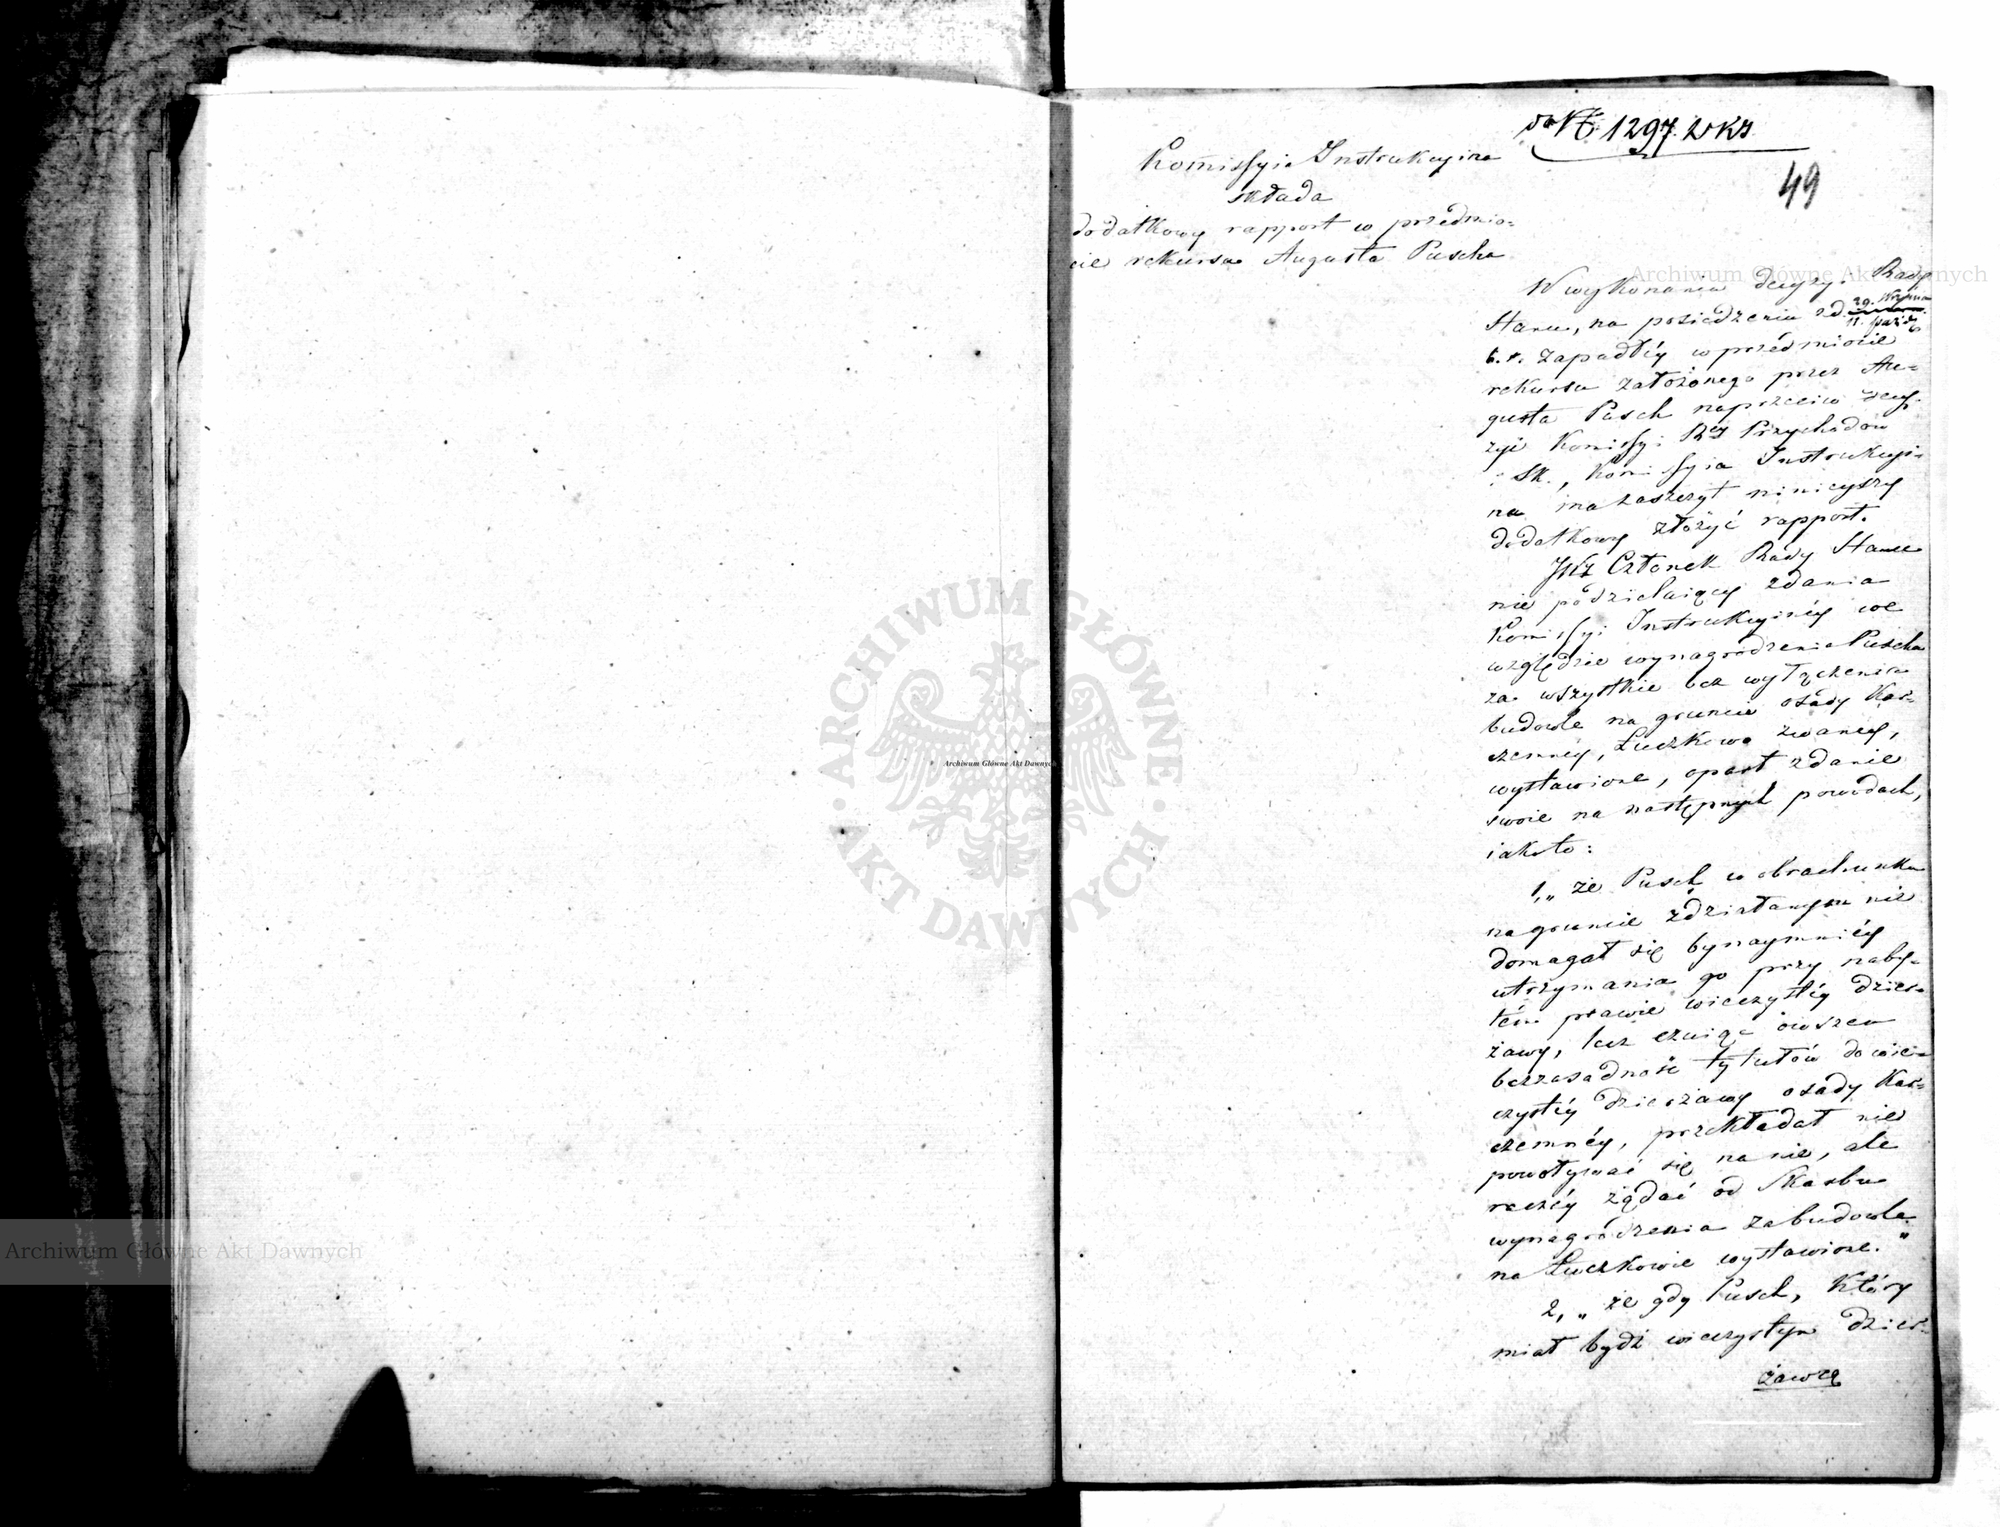 do N 1297. 2 KJ.
49
Komissyia Instrukcyina
składa
dodatkowy rapport w przedmio-
cie rekursu Augusta Puscha
W wykonaniu decyzyi Rady
Stanu, na posiedzeniu z d. 29. Wrzesnia / 11. Paźdz
b. r. zapadłéy w przedmiocie
rekursu założonego przez Au-
gusta Pusch naprzeciw decy-
zyi Komissyi Rząd Przychodów
i Sk., Komissyia Instrukcyi-
na ma zaszczyt ninieyszy
dodatkowy złożyć rapport.
JW Członek Rady Stanu
nie podzielaiący zdania
Komissyi Instrukcyinéy we
względzie wynagrodzenia Puscha
za wszystkie bez wyłączenia
budowle na gruncie osady Kar-
czemney, Łuczkowo zwaney,
wystawione, oparł zdanie
swoie na następnych powodach,
iakoto:
1, „że Pusch w obrachunku
na gruncie zdziałanym nie
domagał się bynaymniéy
utrzymania go przy naby-
tém prawie wieczystéy dzier-
żawy, lecz czuiąc owszem
bezzasadność tytułów do wie-
czystéy dzierżawy osady Kar-
czemnéy, przekładał nie
powoływać się na nie, ale
raczéy żądać od Skarbu
wynagrodzenia za budowle
na Łuczkowie wystawione."
2, „że gdy Pusch, który
miał bydź wieczystym dzier-
żawcą
Archiwum Główne Akt Dawnych
Archiwum Główne Akt Dawnych
ARCHIWUM GŁÓWNE
AKT DAWNYCH
Archiwum Główne Akt Dawnych